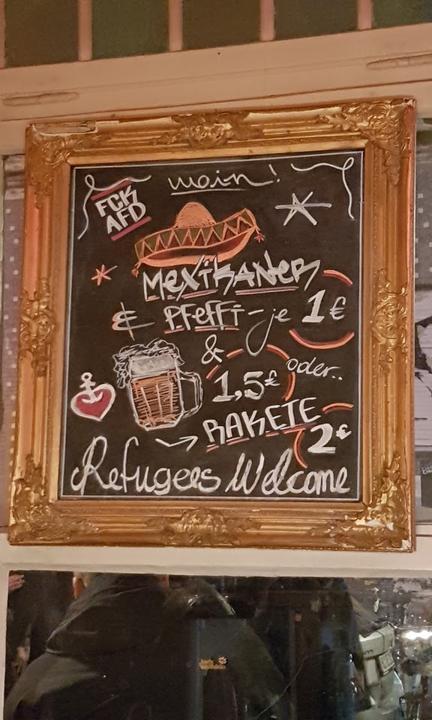 moin!
FCK
AFD
MEXIKANER
& PFEFFI - je 1€
&
1,5€ oder..
RAKETE
2€
Refugees Welcome